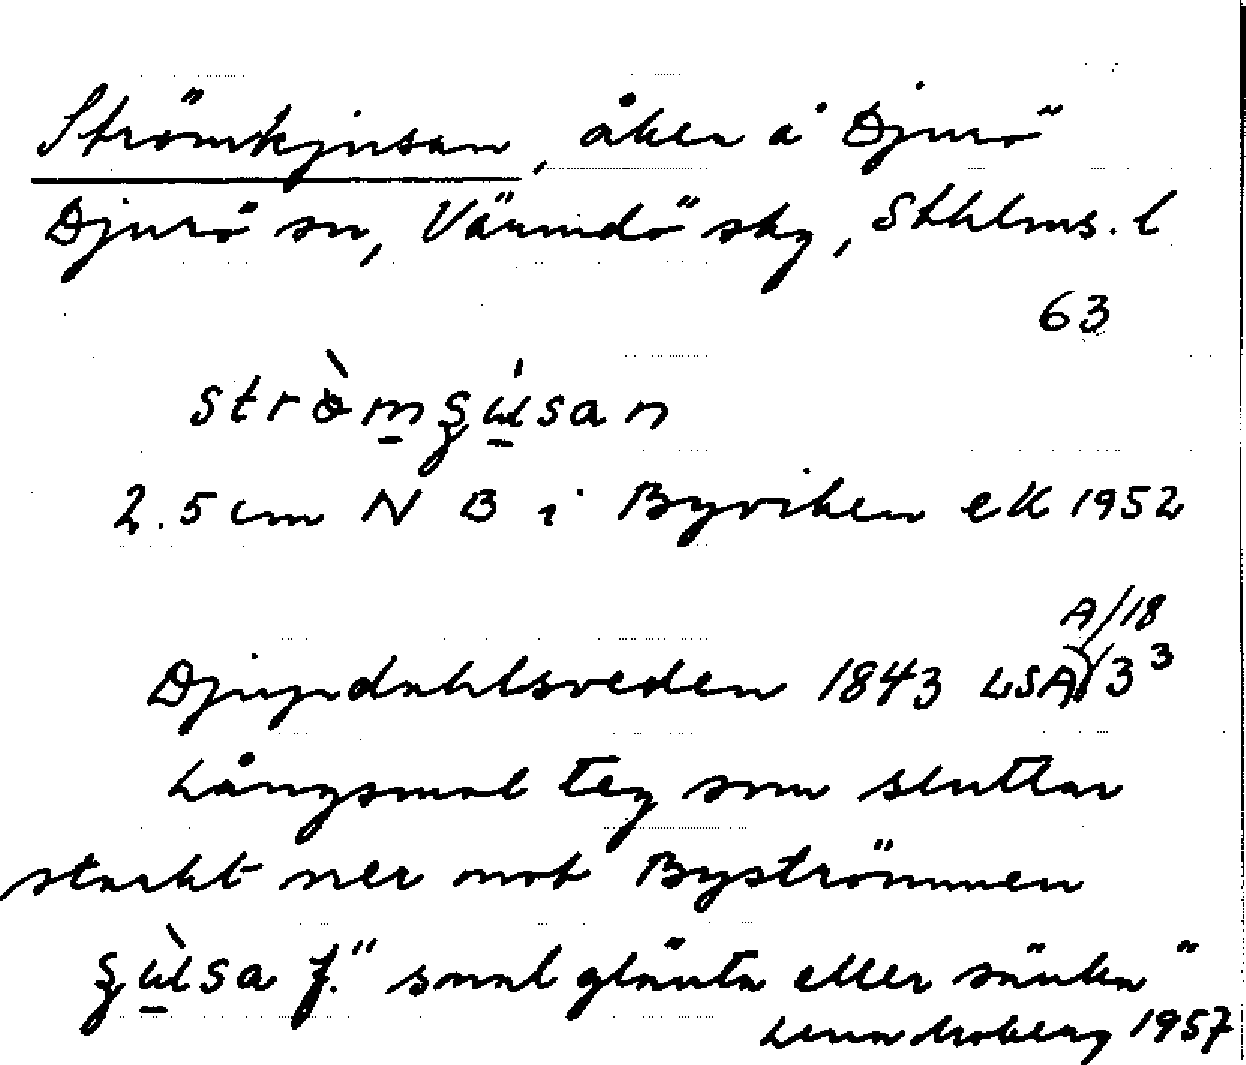 Strömkjusan, åker å Djurö
Djurö sn, Värmdö skg, Sthlms. l
63
strò̀m̲ʂu̲̇san
2.5 cm N B i Byviken eK 1952
A/18
Djupdahlsveden 1843 LSA 3³
Långsmal teg som sluttar
starkt ner mot Byströmmen
ʂù̲sa f. "smal glänta eller sänka"
1957